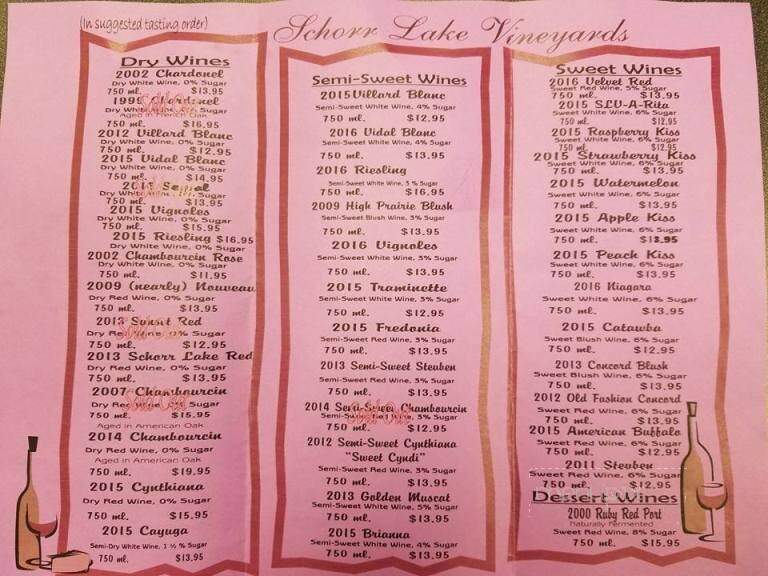 (In suggested tasting order)
Schorr Lake Vineyards
Dry Wines
2002 Chardonel
Dry White Wine, 0% Sugar
750 ml. $13.95
1999 Chardonel
Dry White Wine, 0% Sugar
Aged in French Oak
750 ml. $16.95
2012 Villard Blanc
Dry White Wine, 0% Sugar
750 ml. $12.95
2015 Vidal Blanc
Dry White Wine, 0% Sugar
750 ml. $14.95
Seyval
Dry White Wine, 0% Sugar
750 ml. $13.95
2015 Vignoles
Dry White Wine, 0% Sugar
750 ml. $15.95
2015 Riesling $16.95
Dry White Wine, 0% Sugar
2002 Chambourcin Rose
Dry White Wine, 0% Sugar
750 ml. $11.95
2009 (nearly) Nouveau
Dry Red Wine, 0% Sugar
750 ml. $13.95
2013 Sunset Red
Dry Red Wine, 0% Sugar
Sold Out
750 ml. $12.95
2013 Schorr Lake Red
Dry Red Wine, 0% Sugar
750 ml. $13.95
2007 Chambourcin
Sold Out
Dry Red Wine, 0% Sugar
750 ml. $15.95
Aged in American Oak
2014 Chambourcin
Dry Red Wine, 0% Sugar
Aged in American Oak
750 ml. $19.95
2015 Cynthiana
Dry Red Wine, 0% Sugar
750 ml. $15.95
2015 Cayuga
Semi-Dry White Wine, 1 ½ % Sugar
750 ml. $13.95
Semi-Sweet Wines
2015 Villard Blanc
Semi-Sweet White Wine, 4% Sugar
750 ml. $12.95
2016 Vidal Blanc
Semi-Sweet White Wine, 4% Sugar
750 ml. $13.95
2016 Riesling
Semi-Sweet White Wine, 5 % Sugar
750 ml. $16.95
2009 High Prairie Blush
Semi-Sweet Blush Wine, 5% Sugar
750 ml. $13.95
2016 Vignoles
Semi-Sweet White Wine, 3% Sugar
750 ml. $13.95
2015 Traminette
Semi-Sweet White Wine, 3% Sugar
750 ml. $12.95
2015 Fredonia
Semi-Sweet Red Wine, 3% Sugar
750 ml. $13.95
2013 Semi-Sweet Steuben
Semi-Sweet Red Wine, 3% Sugar
750 ml. $13.95
2014 Semi-Sweet Chambourcin
Sold Out
Semi-Sweet Red Wine, 3% Sugar
750 ml. $12.95
2012 Semi-Sweet Cynthiana
"Sweet Cyndi"
Semi-Sweet Red Wine, 3% Sugar
750 ml. $13.95
2013 Golden Muscat
Semi-Sweet White Wine, 5% Sugar
750 ml. $13.95
2015 Brianna
Semi-Sweet White Wine, 4% Sugar
750 ml. $13.95
Sweet Wines
2016 Velvet Red
Sweet Red Wine, 5% Sugar
750 ml. $13.95
2015 SLU-A-Rita
Sweet White Wine, 6% Sugar
750 ml. $12.95
2015 Raspberry Kiss
Sweet White Wine, 6% Sugar
750 ml. $12.95
2015 Strawberry Kiss
Sweet White Wine, 6% Sugar
750 ml. $13.95
2015 Watermelon
Sweet White Wine, 6% Sugar
750 ml. $13.95
2015 Apple Kiss
Sweet White Wine, 6% Sugar
750 ml. $13.95
2015 Peach Kiss
Sweet White Wine, 6% Sugar
750 ml. $13.95
2016 Niagara
Sweet White Wine, 6% Sugar
750 ml. $13.95
2015 Catawba
Sweet Blush Wine, 6% Sugar
750 ml. $12.95
2013 Concord Blush
Sweet Blush Wine, 6% Sugar
750 ml. $13.95
2012 Old Fashion Concord
Sweet Red Wine, 6% Sugar
750 ml. $13.95
2015 American Buffalo
Sweet Red Wine, 6% Sugar
750 ml. $12.95
2011 Steuben
Sweet Red Wine, 6% Sugar
750 ml. $12.95
Dessert Wines
2000 Ruby Red Port
Naturally Fermented
Sweet Red Wine, 8% Sugar
750 ml. $15.95